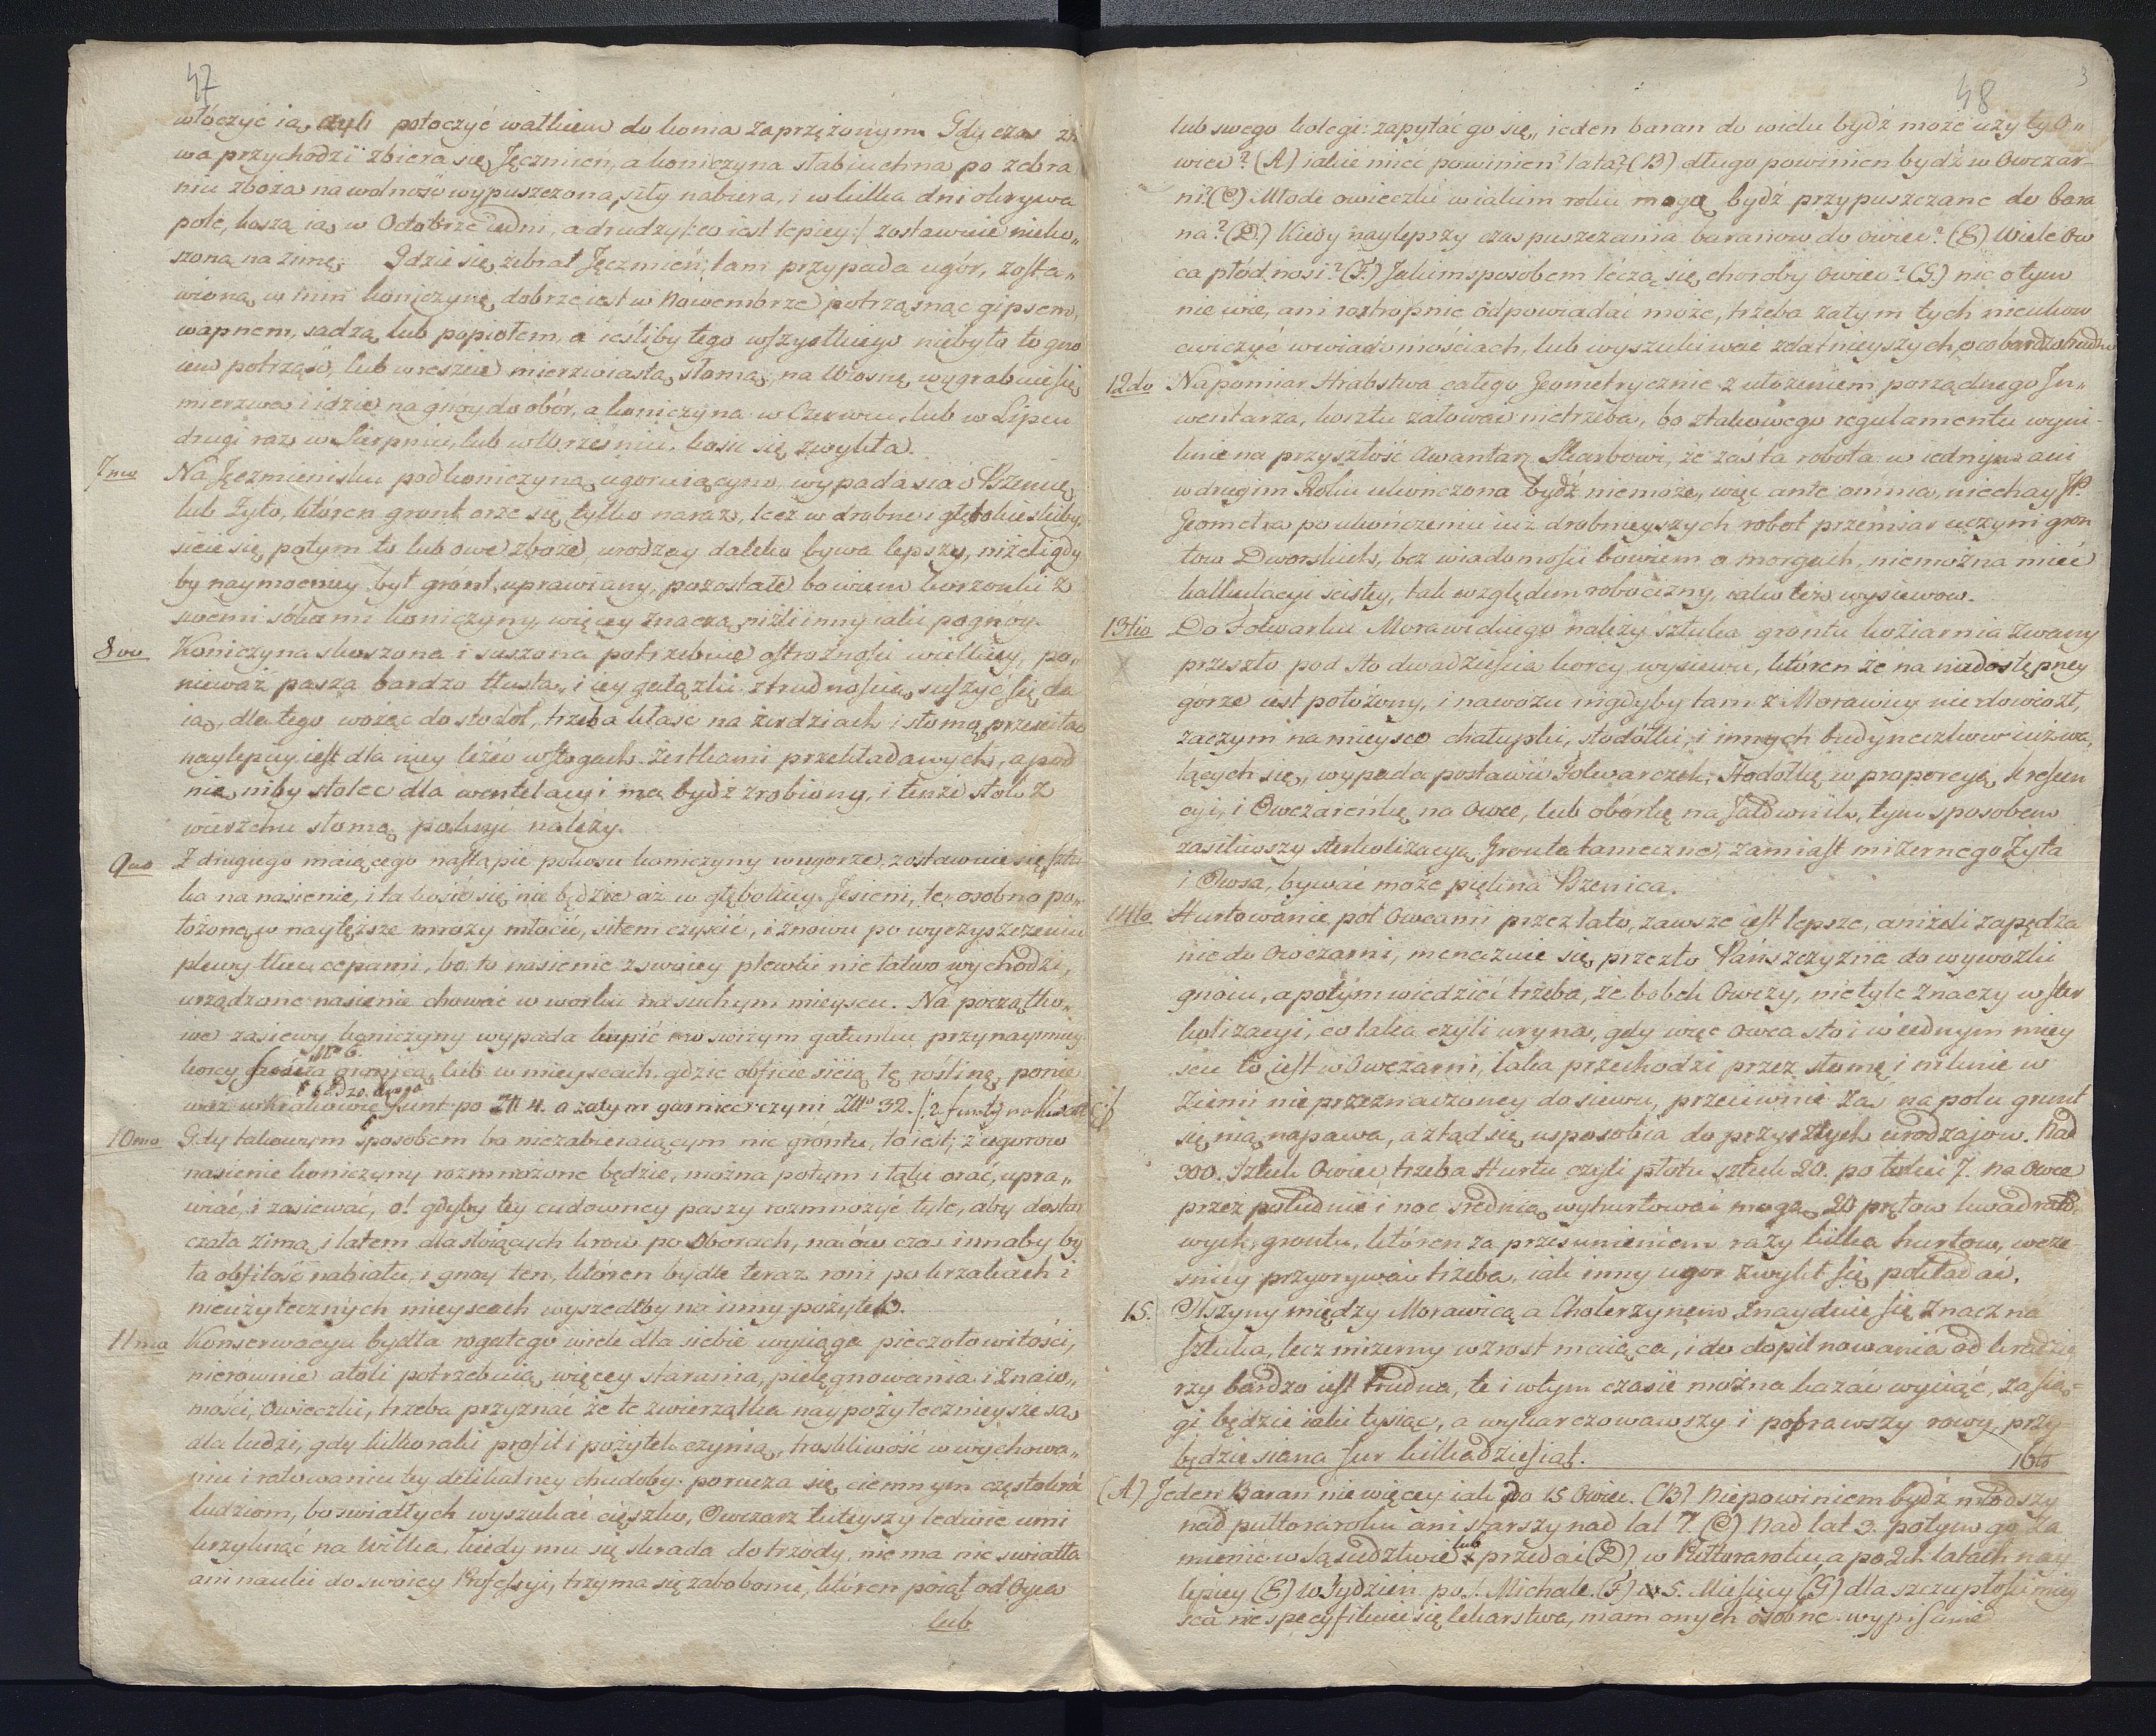 47
włóczyć ią, czyli potoczyć wałkiem do konia zaprzężonym. Gdy czas żni
wa przychodzi zbiera się Jęczmień, a koniczyna słabiuchna po zebra
niu zboża na wolność wypuszczona, siły nabiera, i w kilka dni okrywa
pole, koszą ią w Octobrze iedni, a drudzy /: co iest lepiey :/ zostawuią nieko„
szoną na zimę. Gdzie się zebrał Jęczmień, tam przypada ugór, zosta„
wioną w nim koniczynę, dobrze iest w Nowembrze potrząsnąc gipsem,
wapnem, sadzą lub popiołem, a ieśliby tego wszystkiego niebyło to gno
iem potrząść, lub wreszcie mierzwiastą słomą, na Wiosnę wygrabuie się
mierzwa i idzie na gnóy do obór, a koniczyna w Czerwcu, lub w Lipcu
drugi raz w Sierpniu, lub w Wrześniu, kosic się zwykła.
7mo Na Jęczmienisku pod koniczyną ugoruiącym, wypada siać Pszenicę,
lub Żyto, któren grunt orze się tylko naraz, lecz w drobne i głębokie skiby,
sieie się potym to lub owe zboże, urodzay daleko bywa lepszy, niżeli gdy
by naymocniey był grónt uprawiany, pozostałe bowiem korzonki z
swemi sokami koniczyny, więcey znaczą niżli inny iaki pognóy.
8vo Koniczyna skoszona i suszona potrzebuie ostrożności wielkiey, po„
nieważ pasza bardzo tłusta, i iey gałązki z trudnością suszyć się da
ią, dla tego wożąc do stodół, trzeba kłaść na żerdziach i słomą przekładać
naylepiey iest dla niey leżeć w stogach żerdkami przekładawych, a pod
nią niby stolec dla wentelacyi ma bydź zrobiony, i tenże stóg z
wierzchu słomą poszyć należy.
9no Z drugiego maiącego nastąpić pokosu koniczyny w ugorze, zostawuie się sztu
ka na nasienie, i ta kosić się nie będzie aż w głębokiey Jesieni, tę osobno po„
łożoną w naytęższe mrozy młócić, sitem czyścić, i znowu po wyczyszczeniu
plewy tłuc cepami, bo to nasienie z swoiey plewki nie łatwo wychodzi,
urządzone nasienie chować w worku na suchym mieyscu. Na początko„
we zasiewy koniczyny wypada kupić w świżym gatunku przynaymniey
No 6.
korcy granicą, lub w mieyscach, gdzie obficie sieią tę roślinę, ponie
waż w Krakowie funt po Zł 4. a zatym garniec czyni Złł 32.
10mo Gdy takowym sposobem bo niezabieraiącym nic gróntu, to iest, z ugorow
nasienie koniczyny rozmnożone będzie, można potym i łąki orać, upra„
wiać, i zasiewać, o! gdyby tey cudowney paszy rozmnożyć tyle, aby dostar
czała zimą i latem dla stoiących krow po Oborach, na ów czas innaby by
ła obfitość nabiału, i gnóy ten, któren bydło teraz roni po krzakach i
nieużytecznych mieyscach wyszedłby na inny pożytek.
11mo Konserwacya bydła rogatego wiele dla siebie wyciąga pieczołowitości,
nierównie atoli potrzebuią więcey starania, pielęgnowania i znaio„
mości, Owieczki, trzeba przyznać że te zwierzątka naypożytecznieysze są
dla ludzi, gdy kilkoraki profit i pożytek czynią, troskliwość w wychowa„
niu i ratowaniu tey delikatney chudoby, porucza się ciemnym częstokroć
ludziom, bo światłych wyszukać ciężko, Owczarz tuteyszy ledwie umi
krzyknąć na Wilka, kiedy mu się skrada do trzody, nie ma nic światła
ani nauki do swoiey Professyi, trzyma się zabobonu, któren poiął od Oyca
lub
48
3
lub swego kolegi: zapytać go się, ieden baran do wielu bydź może użyty O„
wiec? (A) iakie mieć powinien lata? (B) długo powinien bydź w Owczar„
ni? (C) Młode owieczki w iakim roku mogą bydź przypuszczane do bara
na? (D.) Kiedy naylepszy czas puszczania baranow do owiec? (E) Wiele Ow
ca płód nosi? (F.) Jakim sposobem leczą się choroby Owiec? (G.) nic o tym
nie wie, ani roztropnie odpowiadać może, trzeba zatym tych nieukow
cwiczyć w wiadomościach, lub wyszukiwać zdatnieyszych, o co bardzo trudno
12do Na pomiar Hrabstwa całego Geometrycznie z ułożeniem porządnego In„
wentarza, kosztu żałować nietrzeba, bo z takowego regulamentu wyni„
knie na przyszłość Awantaż Skarbowi, że zaś ta robota w iednym ani
w drugim Roku ukończona bydź niemoże, więc ante omnia, niechay JP.
Geometra po ukończeniu iuż drobnieyszych robot przemiar uczyni gron
tow Dworskich, bez wiadomości bowiem o morgach, niemożna mieć
kalkulacyi scisłey, tak względem robocizny, iako też wysiewow.
13tio Do Folwarku Morawickiego należy sztuka gróntu koziarnia zwany
przeszło pod sto dwadzieścia korcy wysiewu, któren że na niedostępney
gorze iest położony, i nawozu nigdyby tam z Morawicy nie dowiozł,
zaczym na mieysce chałupki, stodółki, i innych budynczkow iuż wa,
lących się, wypada postawić Folwarczek, Stodołkę w proporcyą kresen
cyi, i Owczarenkę na Owce, lub obórkę na Jałownik, tym sposobem
zasiliwszy sterkolizacyą Grónta tameczne, zamiast mizernego Żyta
i Owsa, bywać może piękna Pszenica.
14to Hurtowanie pól Owcami przez lato, zawsze iest lepsze, aniżeli zapędza
nie do Owczarni, menażuie się przezto Pańszczyzna do wywozki
gnoiu, a potym wiedzieć trzeba, że bobek Owczy, nie tyle znaczy w ster
kolizacyi, co łaka czyli uryna, gdy więc Owca stoi w iednym miey
scu to iest w Owczarni, łaka przechodzi przez słomę i niknie w
Ziemi nieprzeznaczoney do siewu, przeciwnie zaś na polu grunt
się nią napawa, a ztąd się usposobia do przyszłych urodzaiow. Nad
300. Sztuk Owiec, trzeba Hurtu czyli płotu sztuk 20. po łokci 7. na Owce
przez południe i noc średnią wyhurtować mogą 20 prętow kwadrato„
wych, gruntu, któren za przesunieniem razy kilka hurtow, wcze
śniey przyorywać trzeba, iak inny ugor zwykł się pokładać.
15. Olszyny między Morawicą a Cholerzynem znayduie się znaczna
sztuka, lecz mizerny wzrost maiąca, i do dopilnowania od kradzie
rzy bardzo iest trudna, te i w tym czasie można kazać wyciąć, za sią„
gi będzie iaki tysiąc, a wykarczowawszy i poprawszy rowy, przy„
będzie siana fur kilkadziesiąt.
16to
(A) Jeden Baran nie więcey iak do 15 Owiec. (B) Niepowinien bydź młodszy
nad pułtora roku ani starszy nad lat 7. (C) Nad lat 3. potym go za
mienić w sąsiedztwie lub przedać (D) w Pułtoraroku, a po 2ch latach nay
lepiey (E) W tydzień po S. Michale. (F) 5. Miesięcy (G) dla szczupłości miey
sca nie specyfikuie się lekarstwa, mam onych osobne wypisanie